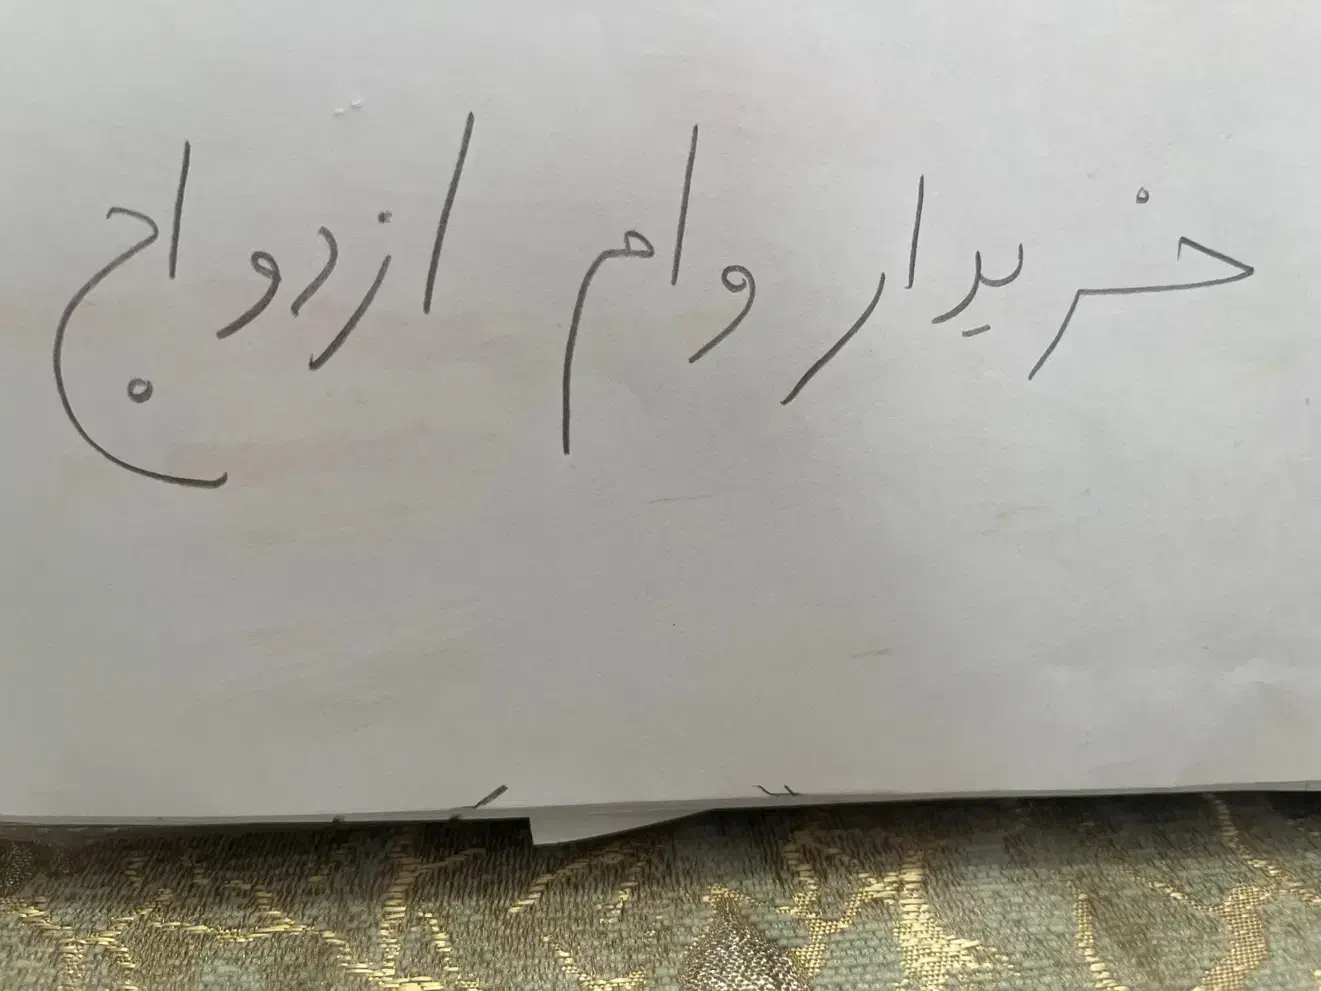 خریدار وام ازدواج